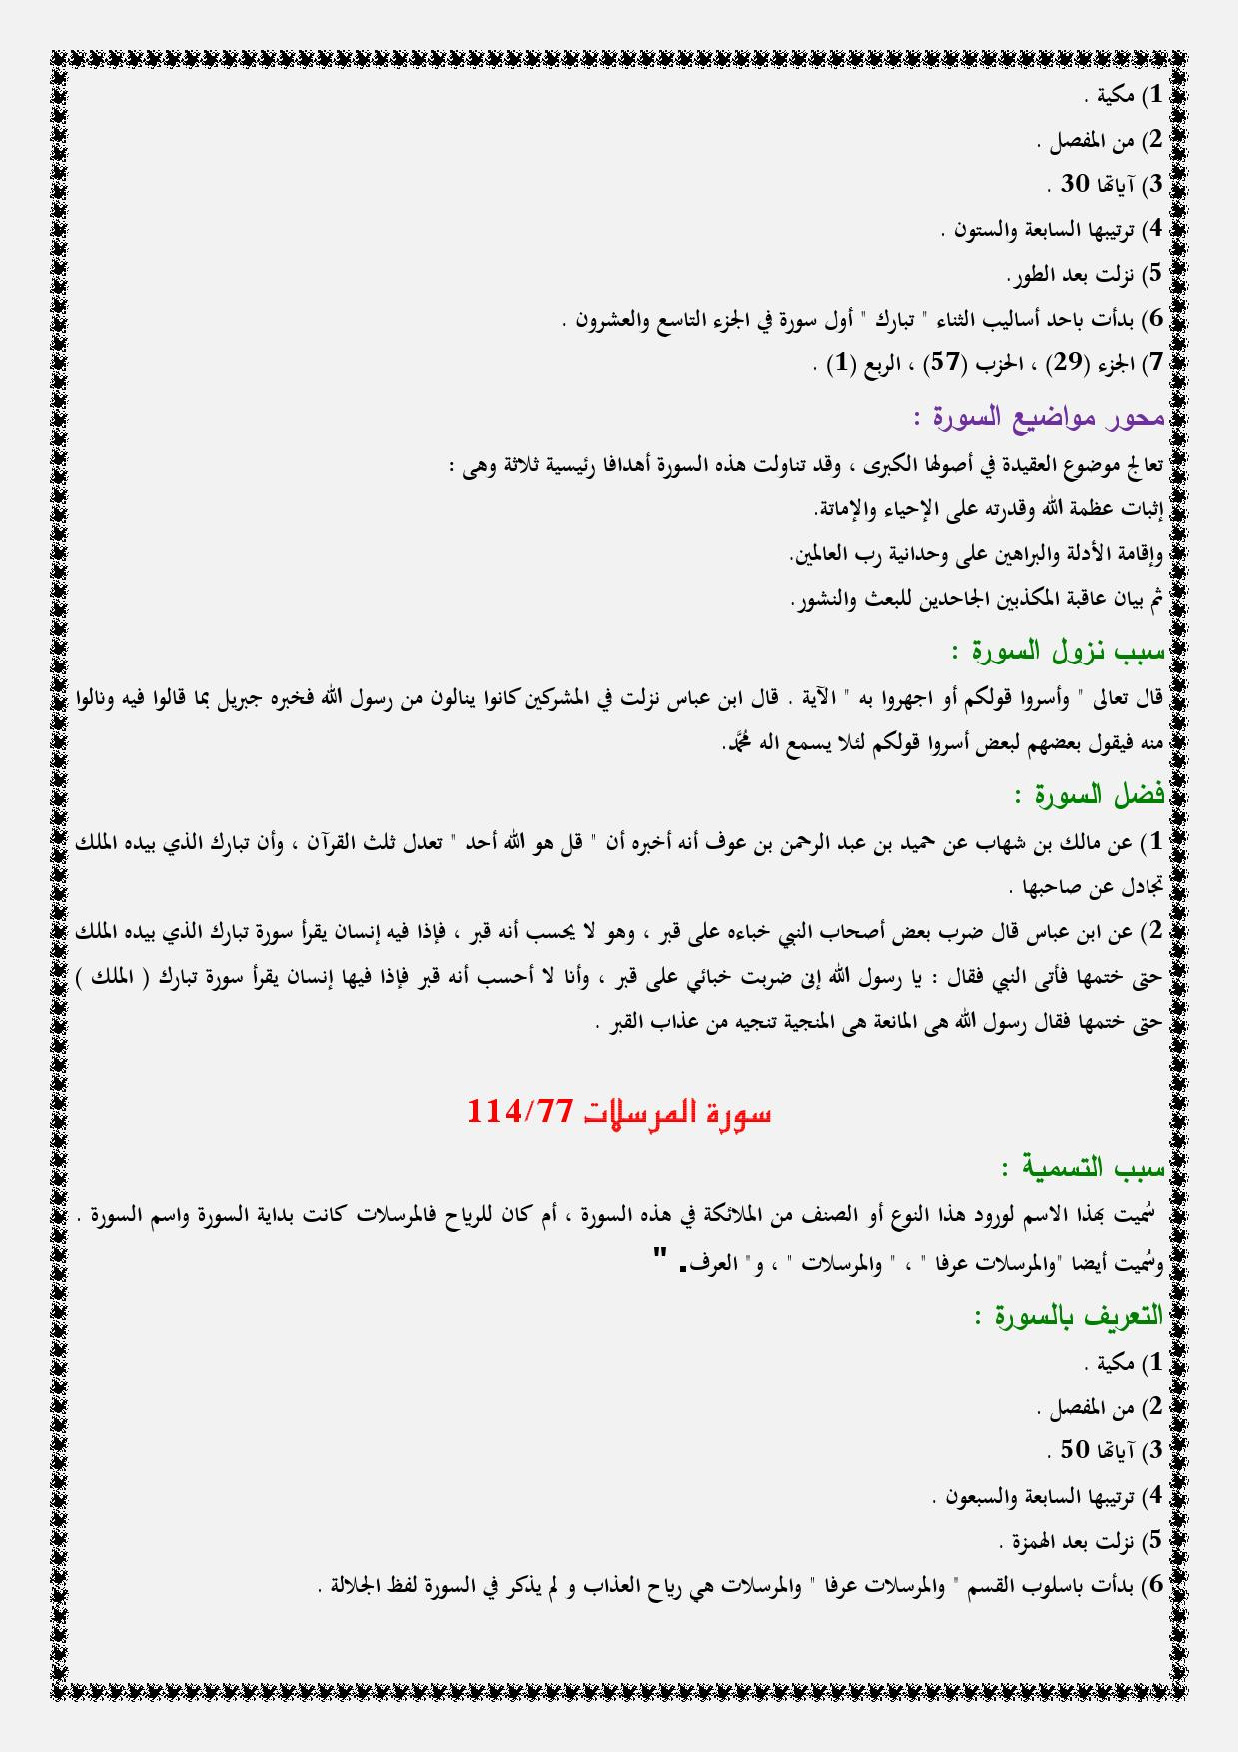 1) مكية .
2) من المفصل .
3) آياتها 30 .
4) ترتيبها السابعة والستون .
5) نزلت بعد الطور.
6) بدأت باحد أساليب الثناء " تبارك " أول سورة في الجزء التاسع والعشرون .
7) الجزء (29) ، الحزب (57) ، الربع (1) .
محور مواضيع السورة :
تعالج موضوع العقيدة في أصولها الكبرى ، وقد تناولت هذه السورة أهدافا رئيسية ثلاثة وهى :
إثبات عظمة الله وقدرته على الإحياء والإماتة.
وإقامة الأدلة والبراهين على وحدانية رب العالمين.
ثم بيان عاقبة المكذبين الجاحدين للبعث والنشور.
سبب نزول السورة :
قال تعالى " وأسروا قولكم أو اجهروا به " الآية . قال ابن عباس نزلت في المشركين كانوا ينالون من رسول الله فخبره جبريل بما قالوا فيه ونالوا
منه فيقول بعضهم لبعض أسروا قولكم لئلا يسمع اله مُحَمَّد.
فضل السورة :
1) عن مالك بن شهاب عن حميد بن عبد الرحمن بن عوف أنه أخبره أن " قل هو الله أحد " تعدل ثلث القرآن ، وأن تبارك الذي بيده الملك
تجادل عن صاحبها .
2) عن ابن عباس قال ضرب بعض أصحاب النبي خباءه على قبر ، وهو لا يحسب أنه قبر ، فإذا فيه إنسان يقرأ سورة تبارك الذي بيده الملك
حتى ختمها فأتى النبي فقال : يا رسول الله إنى ضربت خبائي على قبر ، وأنا لا أحسب أنه قبر فإذا فيها إنسان يقرأ سورة تبارك ( الملك )
حتى ختمها فقال رسول الله هى المانعة هى المنجية تنجيه من عذاب القبر .
سورة المرسلات 114/77
سبب التسمية :
سُميت بهذا الاسم لورود هذا النوع أو الصنف من الملائكة في هذه السورة ، أم كان للرياح فالمرسلات كانت بداية السورة واسم السورة .
وسُميت أيضا "والمرسلات عرفا " ، " والمرسلات " ، و" العرف. "
التعريف بالسورة :
1) مكية .
2) من المفصل .
3) آياتها 50 .
4) ترتيبها السابعة والسبعون .
5) نزلت بعد الهمزة .
6) بدأت باسلوب القسم " والمرسلات عرفا " والمرسلات هي رياح العذاب و لم يذكر في السورة لفظ الجلالة .